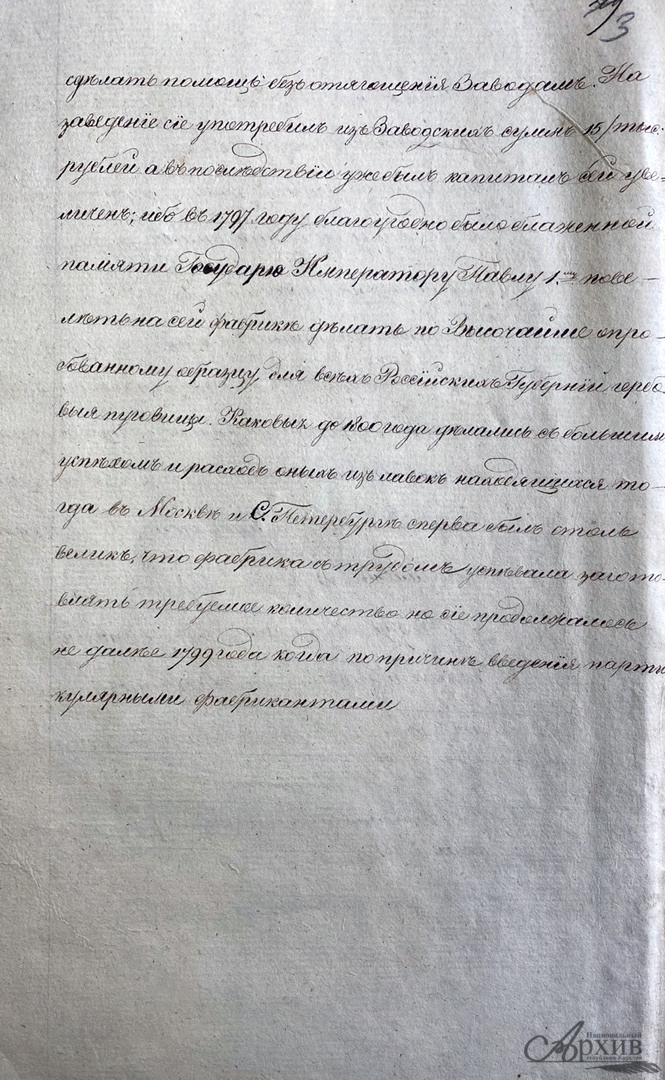 3
сдѣлать помощь безъ отягощенія Заводамъ. На
заведеніе сіе употребилъ изъ Заводскихъ суммъ 15/тыс.
рублей а въ послѣдствіи уже былъ капиталъ сей уве-
личенъ; ибо въ 1797 году благоугодно было блаженной
памяти Государю Императору Павлу 1му пове-
лѣть на сей фабрикѣ дѣлать по Высочайше опро-
бованному образцу для всѣхъ Россійскихъ Губерній гербо-
выя пуговицы. Каковыя до 1800 года дѣлались съ большимъ
успѣхомъ и расходъ оныхъ изъ лавокъ находящихся то-
гда въ Москвѣ и С. Петербургѣ сперва былъ столь
великъ, что фабрика съ трудомъ успѣвала загото-
влять требуемое количество но сіе продолжалось
не далѣе 1799 года когда по причинѣ введенія парти
кулярными фабрикантами
Национальный
Архив
республики Карелия